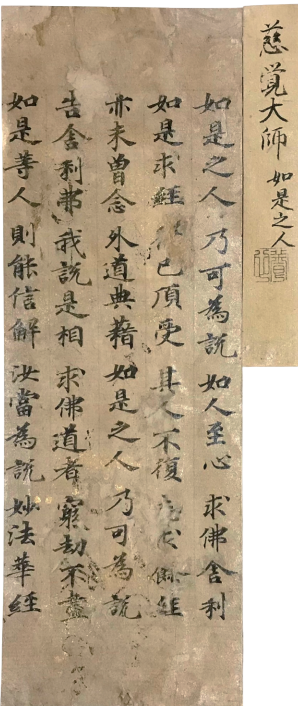 慈覚大師 如是之人
如是之人 乃可為説 如人至心 求佛舎利
如是求經 得已頂受 其人不復 志求餘經
亦未曾念 外道典藉 如是之人 乃可為説
告舎利弗 我説是相 求佛道者 窮劫不盡
如是等人 則能信解 汝當為説 妙法華經